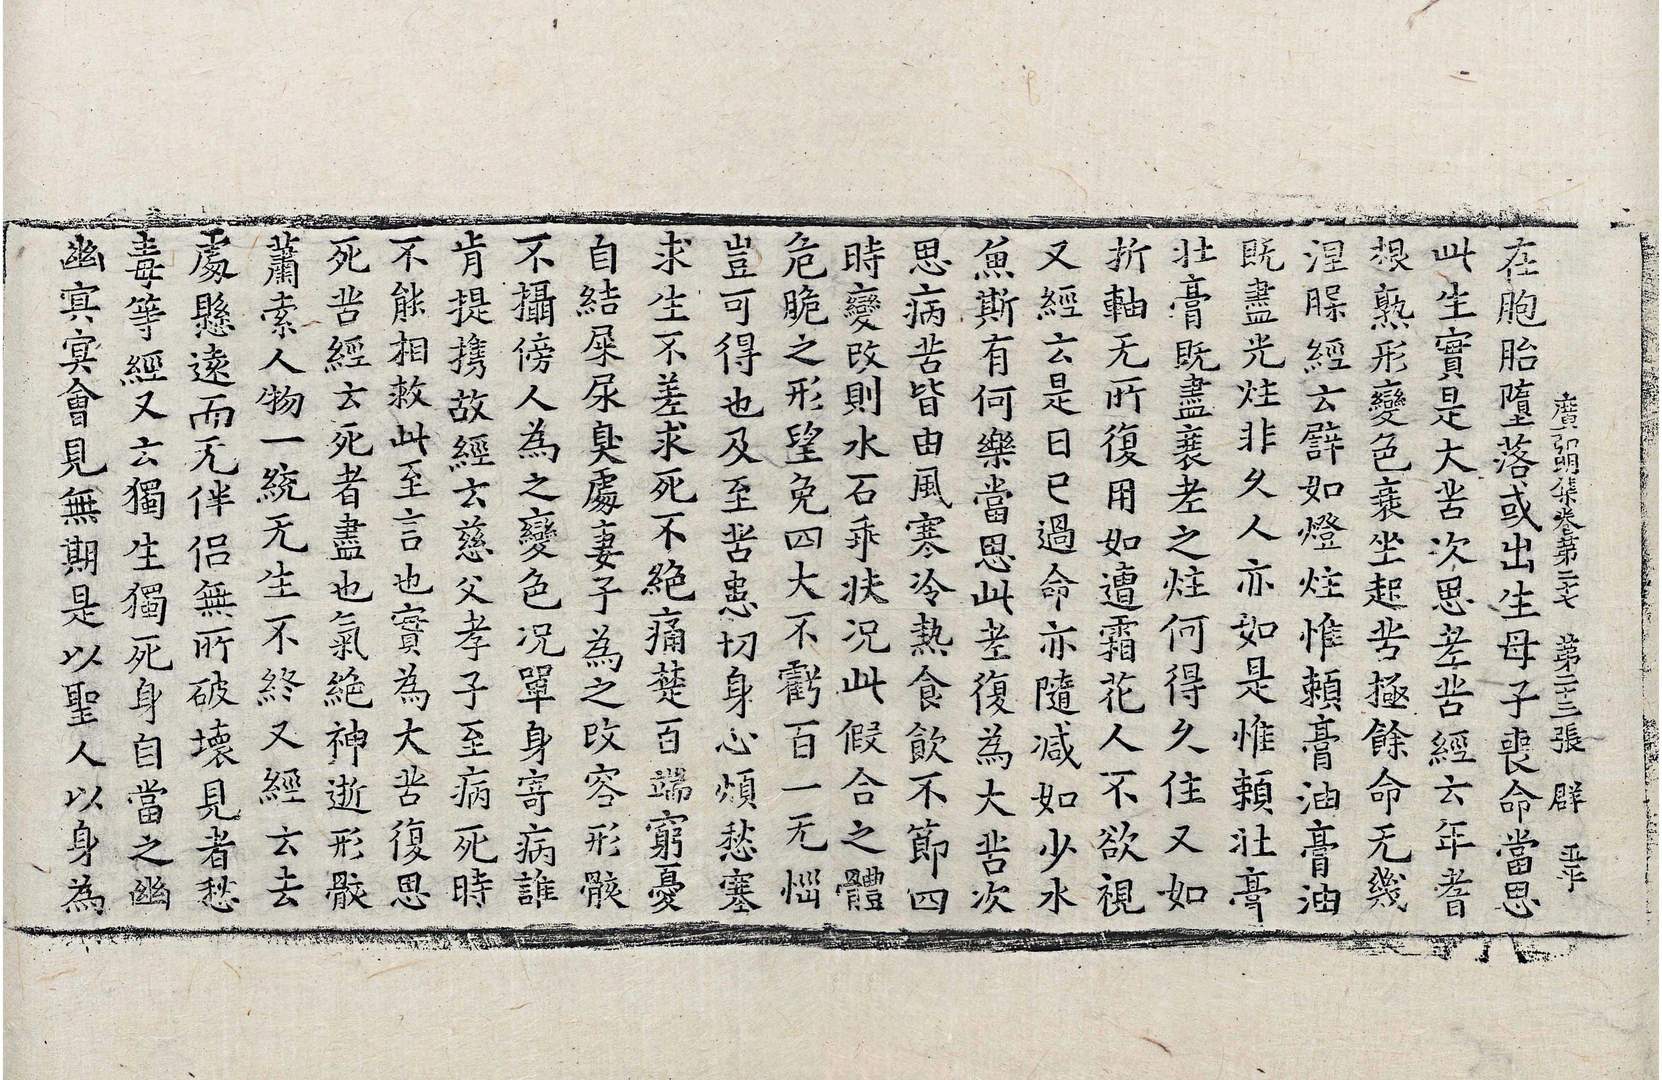 廣弘明集卷第二十七　第二十三張　群
在胞胎墮落或出生母子喪命當思
此生實是大苦次思老苦經云年耆
根熟形變色衰坐起苦極餘命无幾
涅槃經云譬如燈炷惟賴膏油膏油
既盡光炷非久人亦如是惟賴壯膏
壯膏既盡衰老之炷何得久住又如
折軸无所復用如遭霜花人不欲視
又經云是日已過命亦隨減如少水
魚斯有何樂當思此老復為大苦次
思病苦皆由風寒冷熱食飲不節四
時變改則水石乖扶况此假合之體
危脆之形望免四大不虧百一无惱
豈可得也及至苦患切身心煩愁塞
求生不差求死不絕痛楚百端窮憂
自結屎尿臭處妻子為之改容形骸
不攝傍人為之變色况單身寄病誰
肯提携故經云慈父孝子至病死時
不能相救此至言也實為大苦復思
死苦經云死者盡也氣絕神逝形骸
蕭索人物一統无生不終又經云去
處懸遠而无伴侶無所破壞見者愁
毒等經又云獨生獨死身自當之幽
幽冥冥會見無期是以聖人以身為